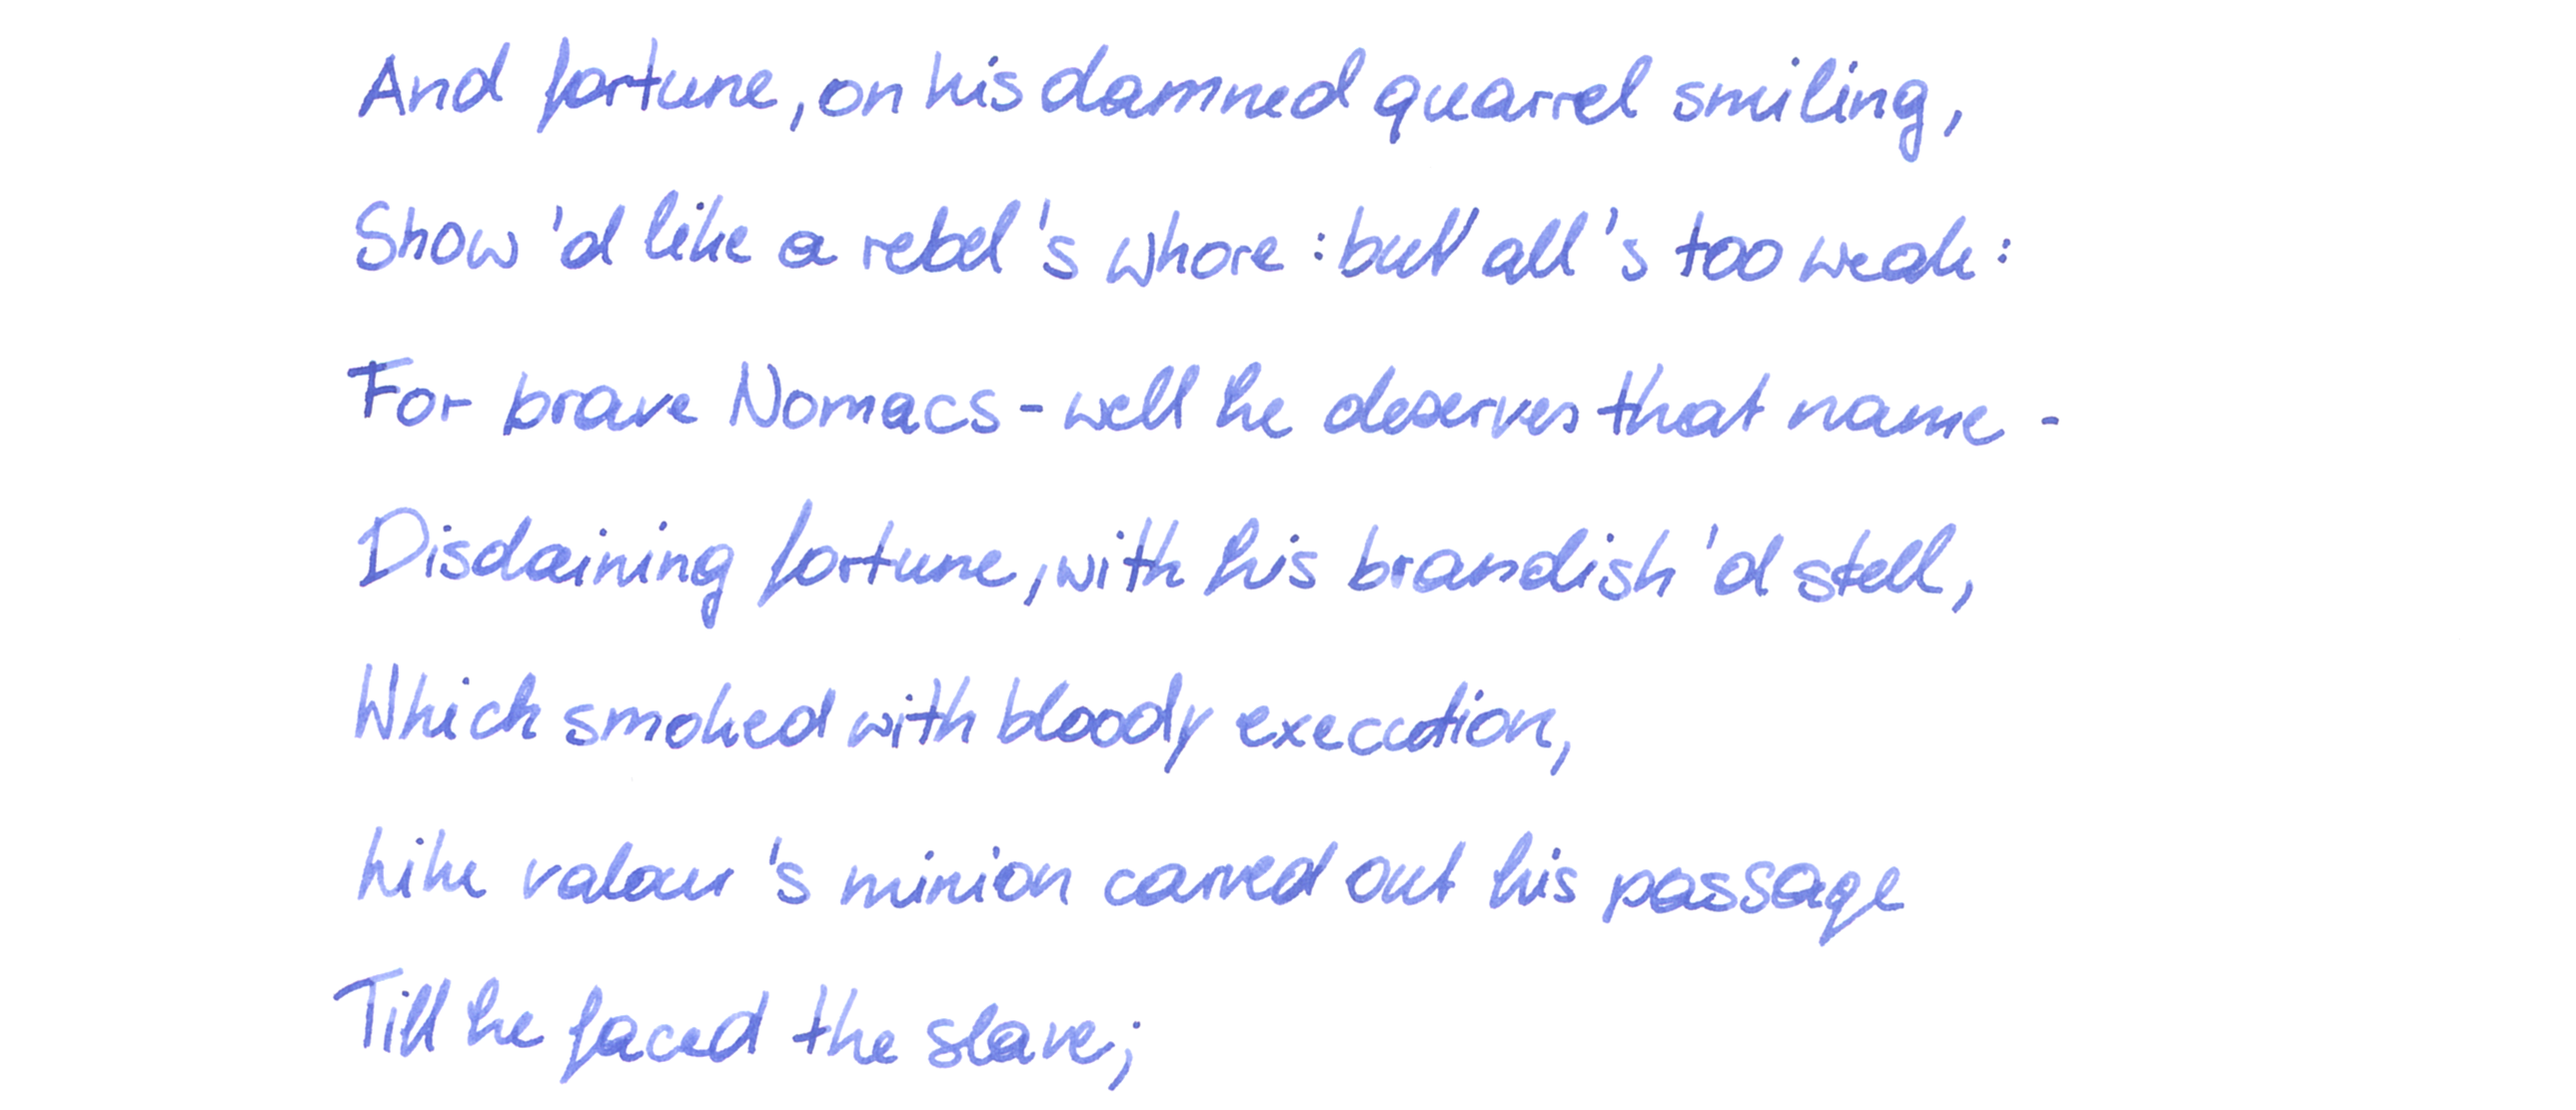 And fortune, on his damned quarrel smiling,
Show'd like a rebel's whore: but all's too weak:
For brave Nomacs - well he deserves that name -
Disdaining fortune, with his brandish'd stell,
Which smoked with bloody execution,
Like valour's minion carved out his passage
Till he faced the slave;